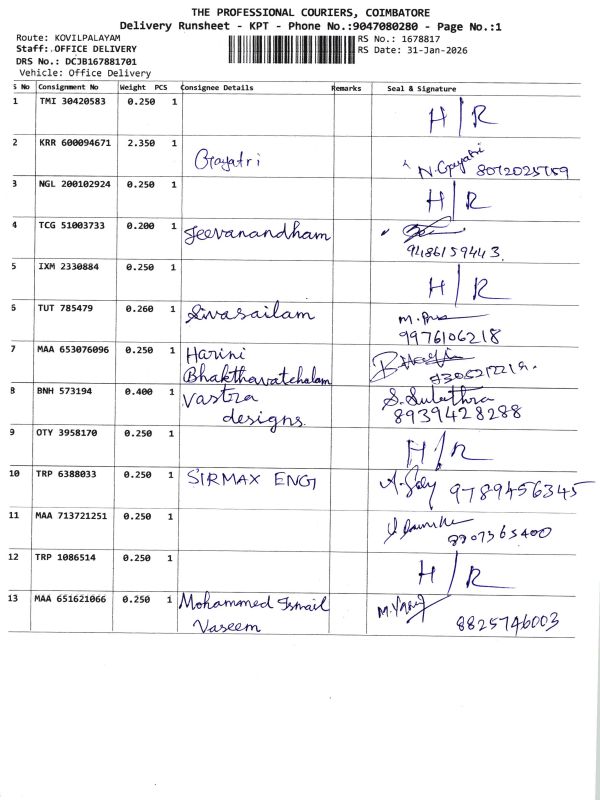 THE PROFESSIONAL COURIERS, COIMBATORE
Delivery Runsheet - KPT - Phone No.:9047080280 - Page No.:1
Route: KOVILPALAYAM
RS No.: 1678817
Staff: OFFICE DELIVERY
RS Date: 31-Jan-2026
DRS No.: DCJB167881701
Vehicle: Office Delivery
S No Consignment No Weight PCS Consignee Details Remarks Seal & Signature
1 TMI 30420583 0.250 1 H/R
2 KRR 600094671 2.350 1 Gayatri N. Gayatri
3 NGL 200102924 0.250 1 H/R
4 TCG 51003733 0.200 1 Jeevanandham
9486159443.
5 IXM 2330884 0.250 1 H/R
6 TUT 785479 0.260 1 Sivasailam
9976106218
7 MAA 653076096 0.250 1 Harini
Bhakthavatchalam
8 BNH 573194 0.400 1 Vastra
designs. 8939428288
9 OTY 3958170 0.250 1 H/R
10 TRP 6388033 0.250 1 SIRMAX ENG 9789456345
11 MAA 713721251 0.250 1
12 TRP 1086514 0.250 1 H/R
13 MAA 651621066 0.250 1 Mohammed Ismail
Vaseem 8825746003